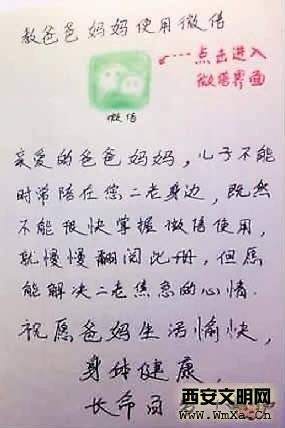 教爸爸妈妈使用微信
点击进入
微信界面
微信
亲爱的爸爸妈妈，儿子不能
时常陪在您二老身边，既然
不能很快掌握微信使用，
就慢慢翻阅此册，但愿
能解决二老焦急的心情.
祝愿爸妈生活愉快，
身体健康，
长命百
西安文明网
www.wmxa.cn